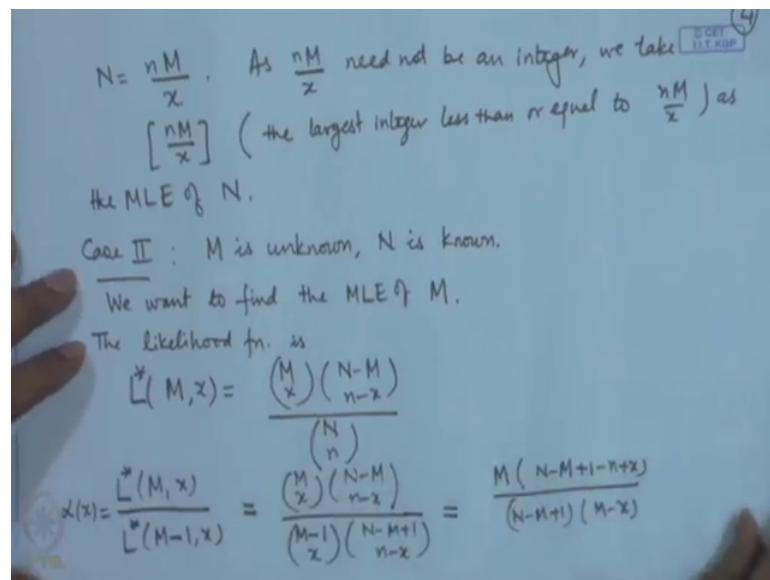 4
© CET
I.I.T. KGP
N = nM/x . As nM/x need not be an integer, we take
[nM/x] ( the largest integer less than or equal to nM/x ) as
the MLE of N.
Case II : M is unknown, N is known.
We want to find the MLE of M.
The likelihood fn. is
L*(M,x) = (M x)(N-M n-x) / (N n)
α(x) = L*(M,x) / L*(M-1,x) = (M x)(N-M n-x) / (M-1 x)(N-M+1 n-x) = M(N-M+1-n+x) / (N-M+1)(M-x)